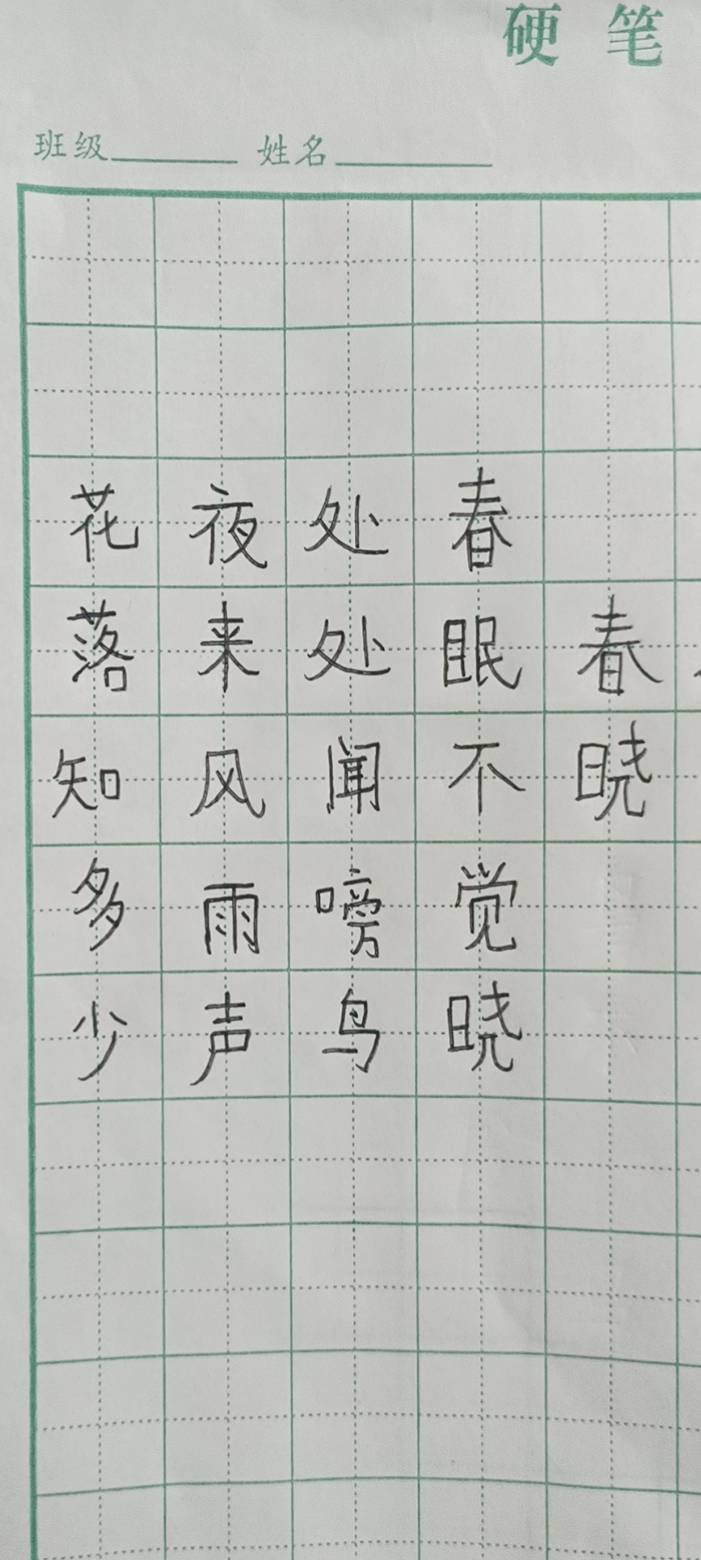 硬笔
班级 姓名
春晓
春眠不觉晓
处处闻嗙鸟
夜来风雨声
花落知多少